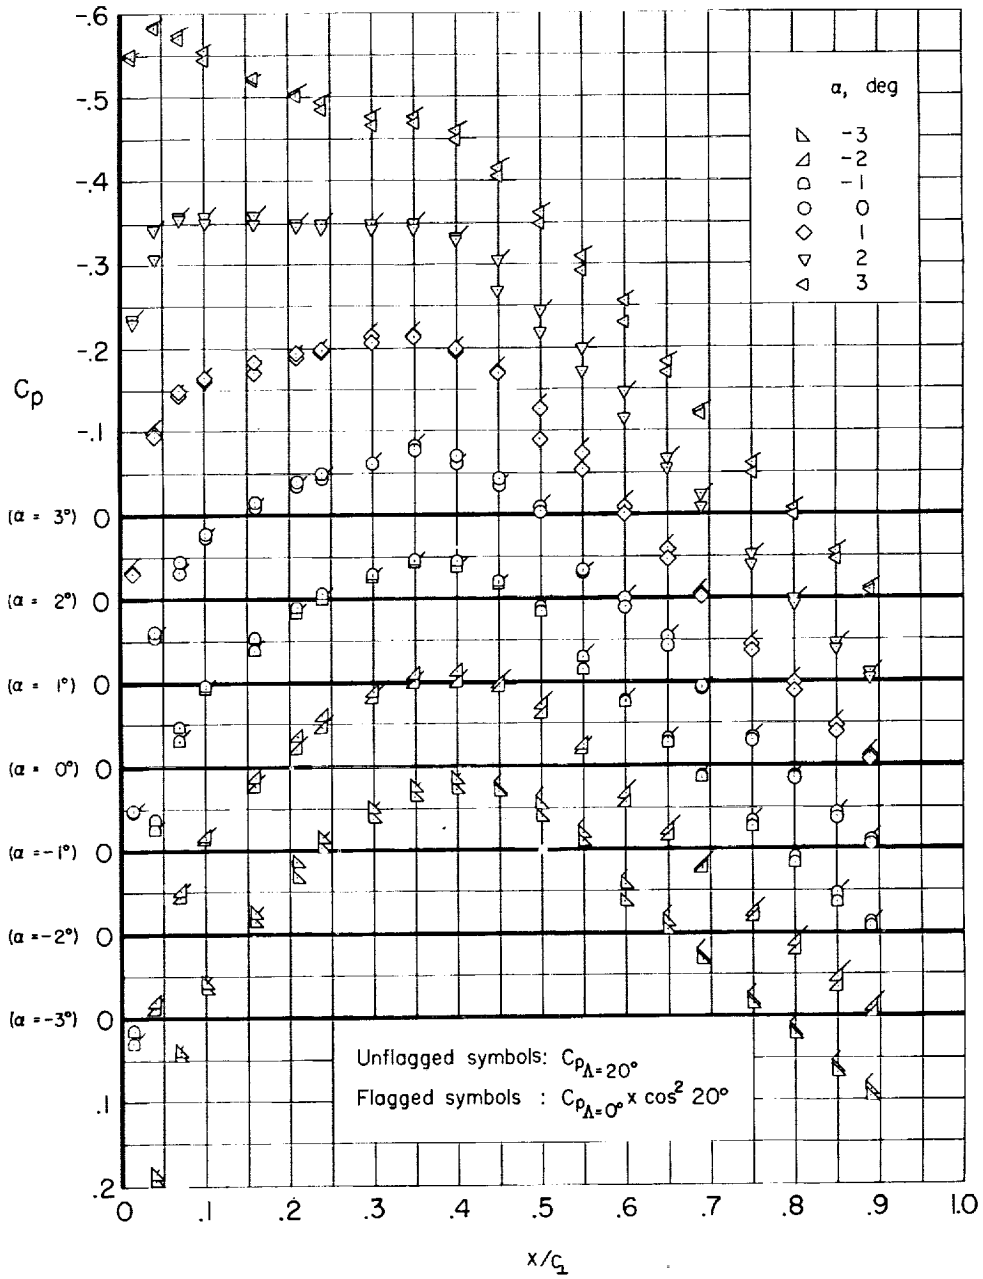 -.6
-.5
-.4
-.3
-.2
-.1
Cp
(α = 3°) 0
(α = 2°) 0
(α = 1°) 0
(α = 0°) 0
(α = -1°) 0
(α = -2°) 0
(α = -3°) 0
.1
.2
α, deg
-3
-2
-1
0
1
2
3
Unflagged symbols: CpΛ=20°
Flagged symbols : CpΛ=0° x cos² 20°
0 .1 .2 .3 .4 .5 .6 .7 .8 .9 1.0